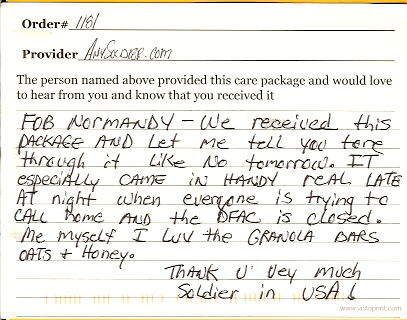 Order# 1181
Provider AnySoldier.com
The person named above provided this care package and would love
to hear from you and know that you received it
FOB NORMANDY - We received this
PACKAGE AND Let me tell you tore
through it Like No tomorrow. IT
especially CAME IN HANDY real LATE
AT night when everyone is trying to
CALL home AND the DFAC is closed.
Me myself I LUV the GRANOLA BARS
OATS + Honey.
THANK U' Vey much
Soldier in USA
www.vistaprint.com